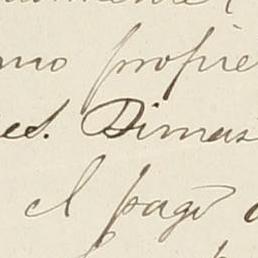 mo propie
es. Dimas
el pago